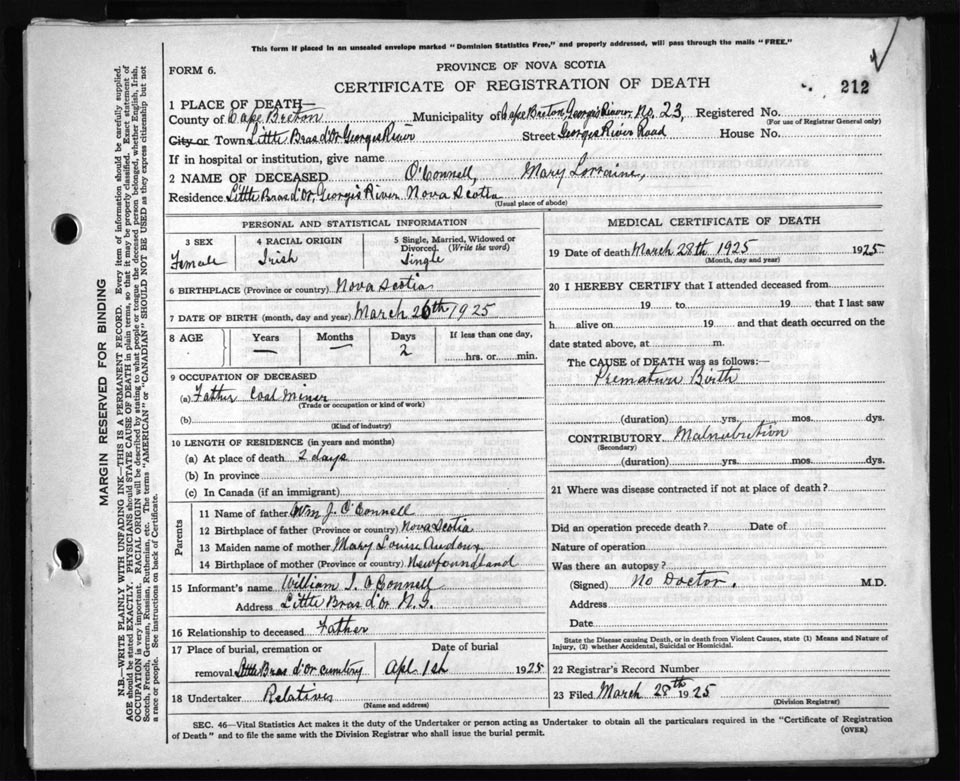 This form if placed in an unsealed envelope marked "Dominion Statistics Free," and properly addressed, will pass through the mails "FREE."
FORM 6.
PROVINCE OF NOVA SCOTIA
CERTIFICATE OF REGISTRATION OF DEATH
212
1 PLACE OF DEATH—
County of Cape Breton Municipality of Cape Breton, Georges River, No. 23, Registered No.
(For use of Registrar General only)
City or Town Little Bras d'Or Georges River Street Georges River Road House No.
If in hospital or institution, give name
2 NAME OF DECEASED O'Connell, Mary Lorraine,
Residence Little Bras d'Or, George's River Nova Scotia
(Usual place of abode)
PERSONAL AND STATISTICAL INFORMATION
3 SEX
Female
4 RACIAL ORIGIN
Irish
5 Single, Married, Widowed or
Divorced. (Write the word)
Single
6 BIRTHPLACE (Province or country) Nova Scotia
7 DATE OF BIRTH (month, day and year) March 26th 1925
8 AGE
Years
—
Months
—
Days
2
If less than one day,
hrs. or min.
9 OCCUPATION OF DECEASED
(a) Father Coal Miner
(Trade or occupation or kind of work)
(b)
(Kind of industry)
10 LENGTH OF RESIDENCE (in years and months)
(a) At place of death 2 days
(b) In province
(c) In Canada (if an immigrant)
Parents
11 Name of father Wm J. O'Connell
12 Birthplace of father (Province or country) Nova Scotia
13 Maiden name of mother Mary Louise
14 Birthplace of mother (Province or country) Newfoundland
15 Informant's name William J. O Connell
Address Little Bras d'Or N.S.
16 Relationship to deceased Father
17 Place of burial, cremation or
removal Little Bras d'Or cemetery
Date of burial
Apl. 1st 1925
18 Undertaker Relatives
(Name and address)
MEDICAL CERTIFICATE OF DEATH
19 Date of death March 28th 1925 1925
(Month, day and year)
20 I HEREBY CERTIFY that I attended deceased from
19 to 19 that I last saw
h alive on 19 and that death occurred on the
date stated above, at m.
The CAUSE of DEATH was as follows:—
Premature Birth
(duration) yrs. mos. dys.
CONTRIBUTORY Malnutrition
(Secondary)
(duration) yrs. mos. dys.
21 Where was disease contracted if not at place of death?
Did an operation precede death? Date of
Nature of operation
Was there an autopsy?
(Signed) No Doctor. M.D.
Address
Date
State the Disease causing Death, or in death from Violent Causes, state (1) Means and Nature of
Injury, (2) whether Accidental, Suicidal or Homicidal.
22 Registrar's Record Number
23 Filed March 28th 1925
(Division Registrar)
SEC. 46—Vital Statistics Act makes it the duty of the Undertaker or person acting as Undertaker to obtain all the particulars required in the "Certificate of Registration
of Death" and to file the same with the Division Registrar who shall issue the burial permit.
(OVER)
MARGIN RESERVED FOR BINDING
N.B.—WRITE PLAINLY WITH UNFADING INK—THIS IS A PERMANENT RECORD. Every item of information should be carefully supplied.
AGE should be stated EXACTLY. PHYSICIANS should STATE CAUSE OF DEATH in plain terms, so that it may be properly classified. Exact statement of
OCCUPATION is very important. RACIAL ORIGIN will be described by stating to what people or tongue the deceased person belonged, whether English, Irish,
Scotch, French, German, Russian, Ruthenian, etc. The terms "AMERICAN" or "CANADIAN" SHOULD NOT BE USED as they express citizenship but not
a race or people. See instructions on back of Certificate.